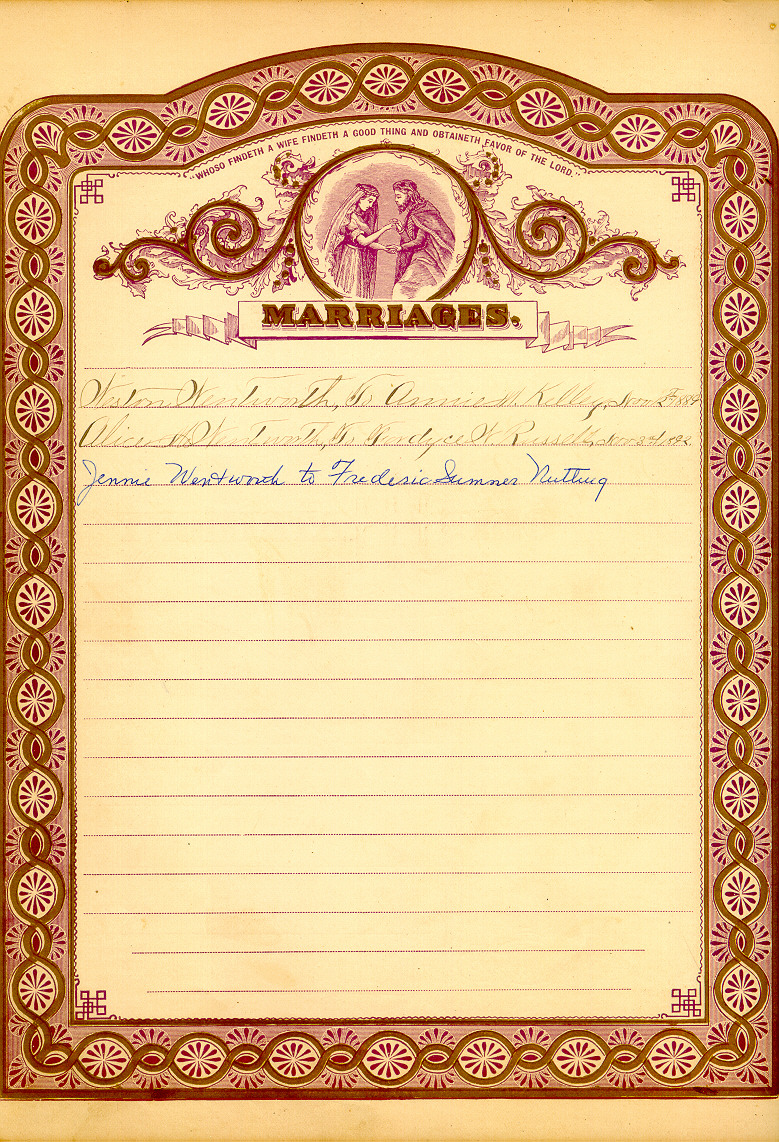 "WHOSO FINDETH A WIFE FINDETH A GOOD THING AND OBTAINETH FAVOR OF THE LORD."
MARRIAGES.
Weston Wentworth, To Annie M. Kelley, Nov
Alice Wentworth, To Fordyce Russell, Nov 3rd, 1892
Jennie Wentworth to Frederic Sumner Nutting